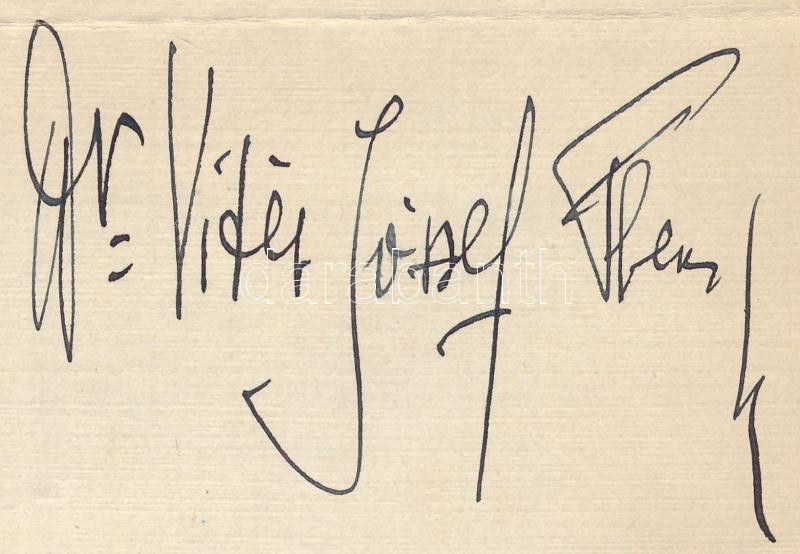 Dr. Vitéz József Ferenc
darabanth